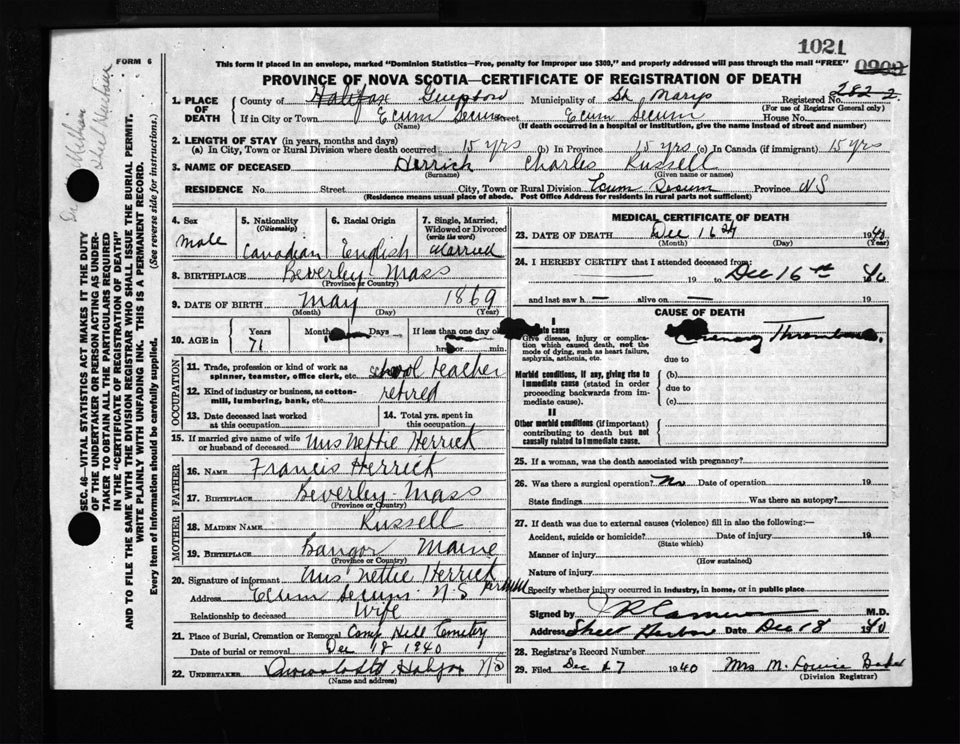 1021
FORM 6
This form if placed in an envelope, marked "Dominion Statistics—Free, penalty for improper use $300," and properly addressed will pass through the mail "FREE"
PROVINCE OF NOVA SCOTIA—CERTIFICATE OF REGISTRATION OF DEATH
282-2
1. PLACE OF DEATH County of Halifax Municipality of St Marys Registered No.
(For use of Registrar General only)
If in City or Town Ecum Secum Street Ecum Secum House No.
(Name) (If death occurred in a hospital or institution, give the name instead of street and number)
2. LENGTH OF STAY (in years, months and days)
(a) In City, Town or Rural Division where death occurred 15 yrs (b) In Province 15 yrs (c) In Canada (if immigrant) 15 yrs
3. NAME OF DECEASED Herrick Charles Russell
(Surname) (Given name or names)
RESIDENCE No. Street City, Town or Rural Division Ecum Secum Province NS
(Residence means usual place of abode. Post Office Address for residents in rural parts not sufficient)
4. Sex male
5. Nationality (Citizenship) Canadian
6. Racial Origin English
7. Single, Married, Widowed or Divorced (write the word) Married
8. BIRTHPLACE Beverley Mass
(Province or Country)
9. DATE OF BIRTH May 1869
(Month) (Day) (Year)
10. AGE IN Years 71 Months Days If less than one day old hrs or min.
OCCUPATION
11. Trade, profession or kind of work as spinner, teamster, office clerk, etc. school teacher
12. Kind of industry or business, as cotton-mill, lumbering, bank, etc. retired
13. Date deceased last worked at this occupation
14. Total yrs. spent in this occupation
15. If married give name of wife or husband of deceased Mrs Nettie Herrick
FATHER
16. NAME Francis Herrick
17. BIRTHPLACE Beverley Mass
(Province or Country)
MOTHER
18. MAIDEN NAME Russell
19. BIRTHPLACE Bangor Maine
(Province or Country)
20. Signature of informant Mrs Nettie Herrick
Address Ecum Secum N.S
Relationship to deceased Wife
21. Place of Burial, Cremation or Removal Camp Hill Cemetery
Date of burial or removal Dec 18 1940
22. UNDERTAKER Halifax NS
(Name and address)
MEDICAL CERTIFICATE OF DEATH
23. DATE OF DEATH Dec 16th 1940
(Month) (Day) (Year)
24. I HEREBY CERTIFY that I attended deceased from
19 to Dec 16th 40
and last saw h alive on 19
CAUSE OF DEATH
I
Immediate cause
Give disease, injury or complication which caused death, not the mode of dying, such as heart failure, asphyxia, asthenia, etc.
Coronary Thrombosis.
due to
Morbid conditions, if any, giving rise to immediate cause (stated in order proceeding backwards from immediate cause).
(b)
due to
(c)
II
Other morbid conditions (if important) contributing to death but not causally related to immediate cause.
25. If a woman, was the death associated with pregnancy?
26. Was there a surgical operation? No Date of operation 19
State findings Was there an autopsy?
27. If death was due to external causes (violence) fill in also the following:—
Accident, suicide or homicide? Date of injury 19
(State which)
Manner of injury
(How sustained)
Nature of injury
Specify whether injury occurred in industry, in home, or in public place
Signed by J R Cameron M.D.
Address Sheet Harbor Date Dec 18 1940
28. Registrar's Record Number
29. Filed Dec 17 1940 Mrs M. Louise Baker
(Division Registrar)
SEC. 46—VITAL STATISTICS ACT MAKES IT THE DUTY
OF THE UNDERTAKER OR PERSON ACTING AS UNDER-
TAKER TO OBTAIN ALL THE PARTICULARS REQUIRED
IN THE "CERTIFICATE OF REGISTRATION OF DEATH"
AND TO FILE THE SAME WITH THE DIVISION REGISTRAR WHO SHALL ISSUE THE BURIAL PERMIT.
WRITE PLAINLY WITH UNFADING INK. THIS IS A PERMANENT RECORD.
Every item of Information should be carefully supplied. (See reverse side for instructions.)